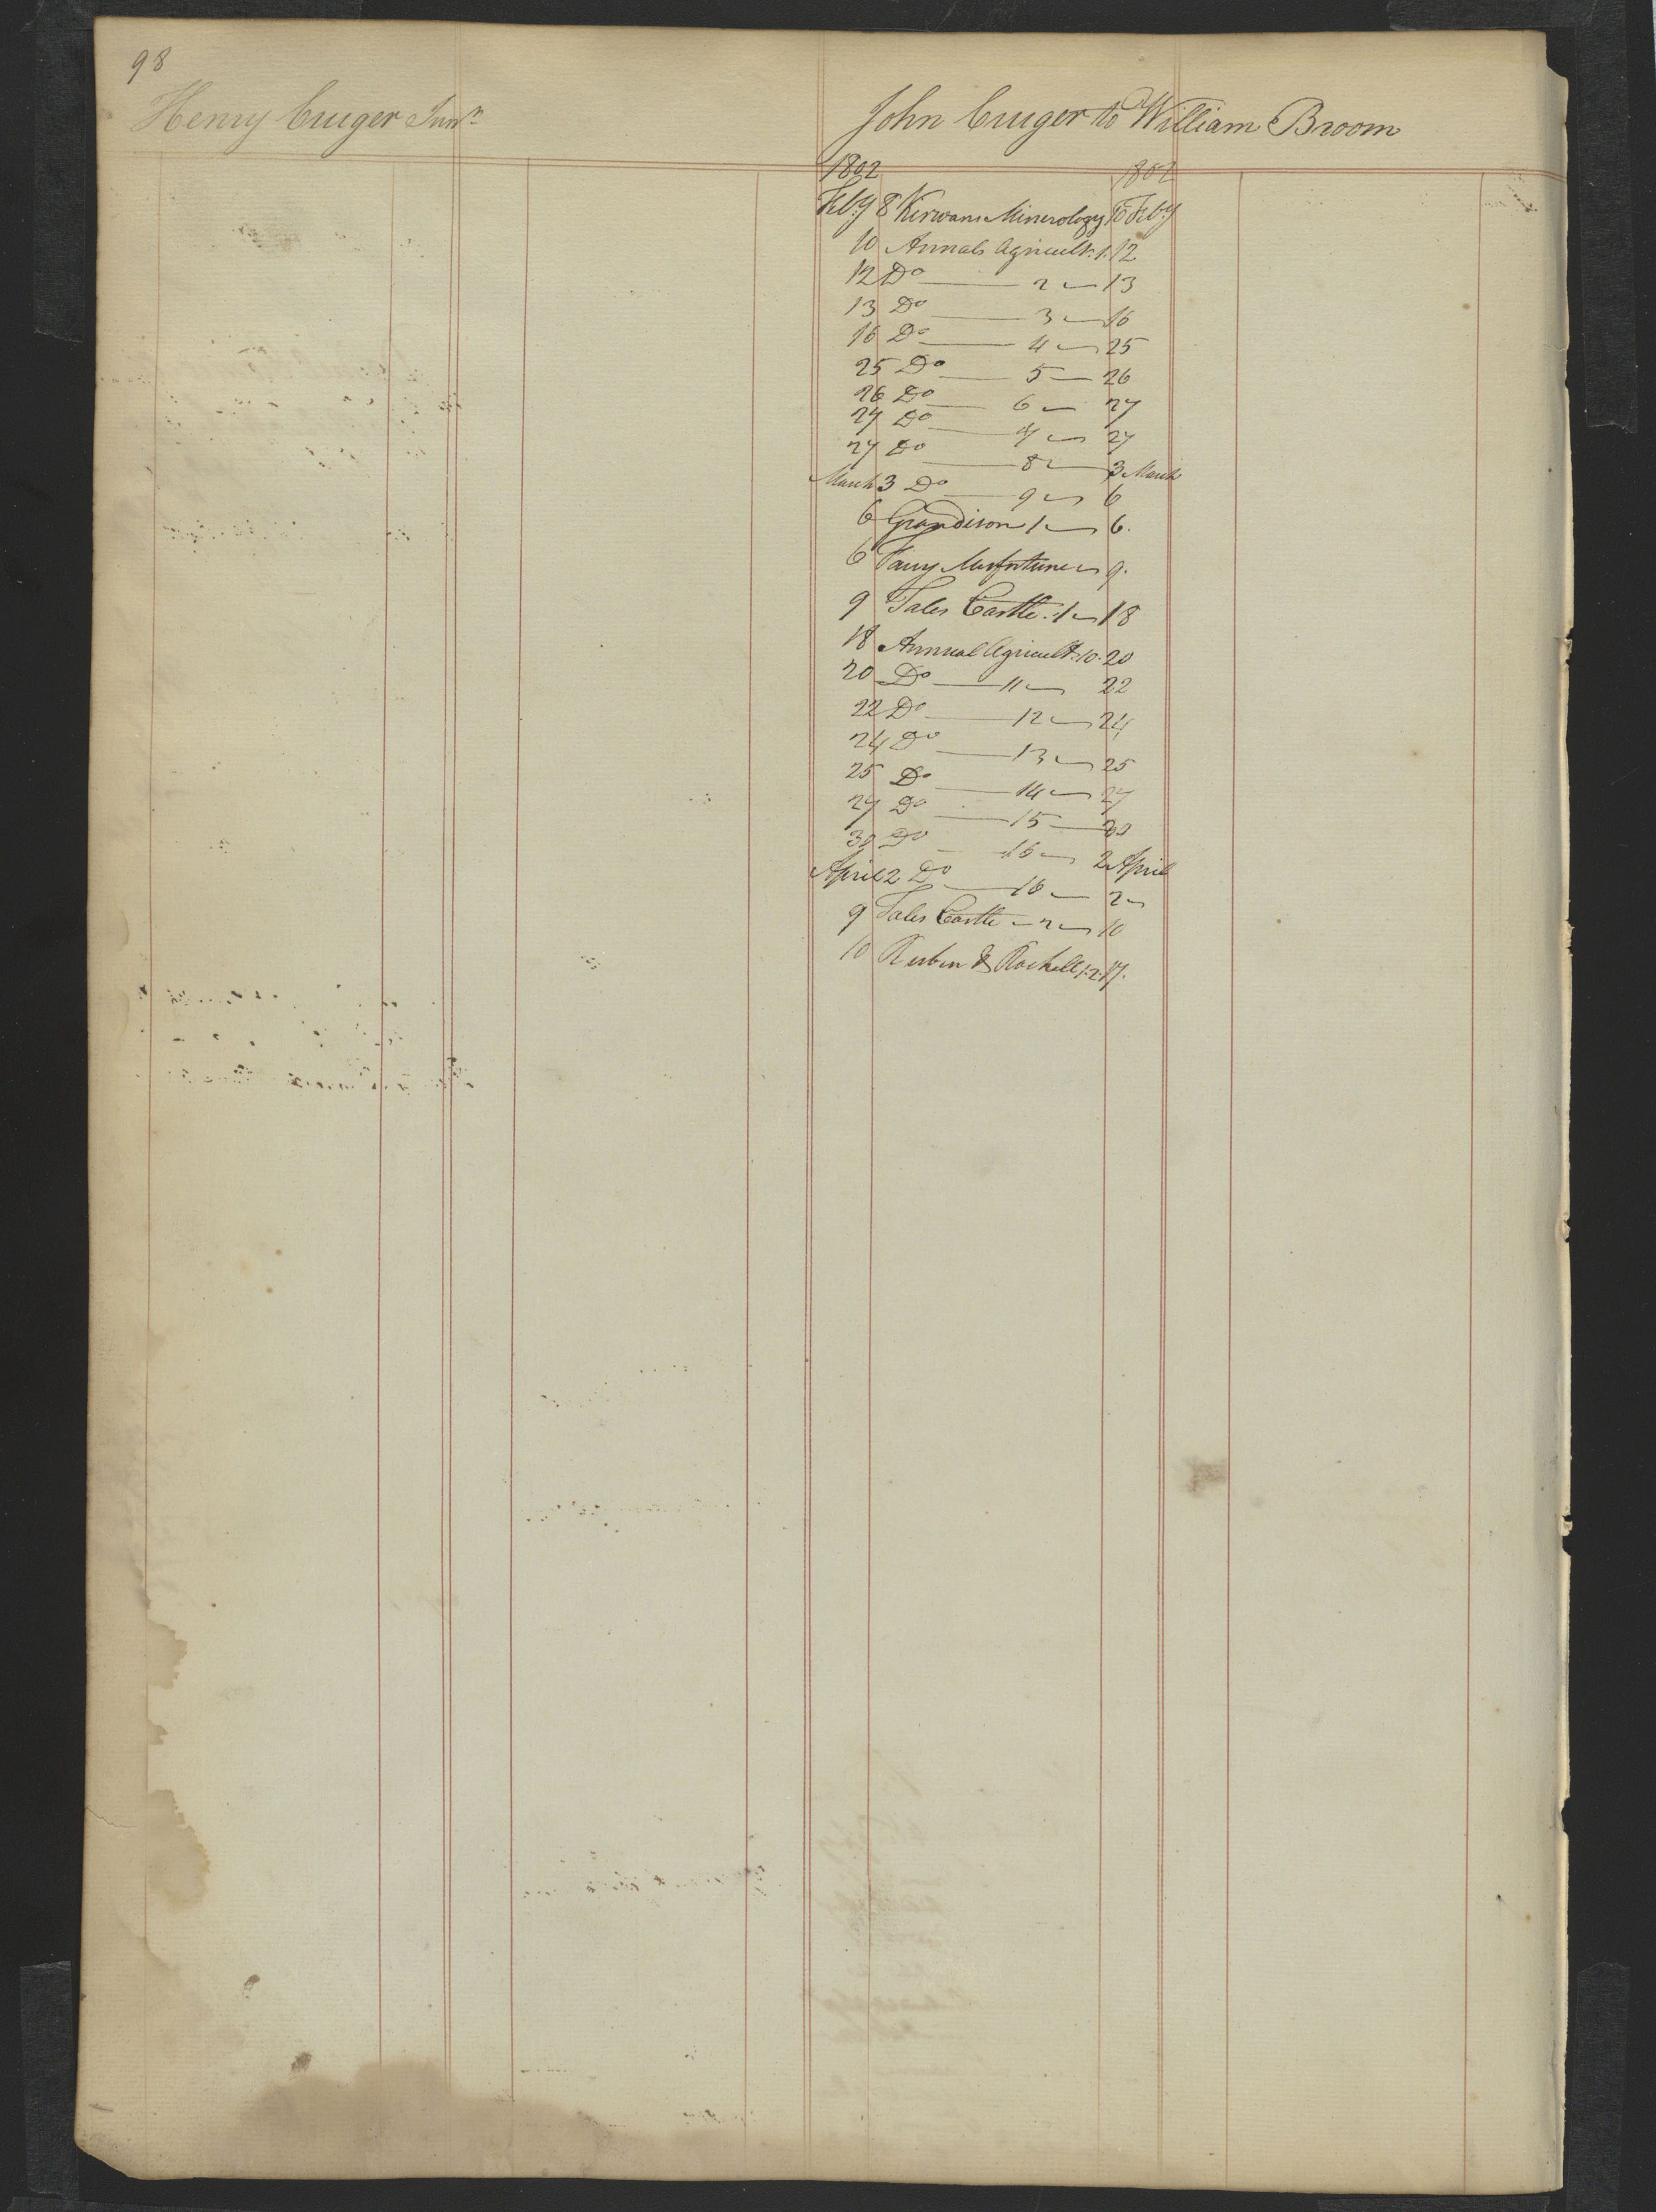 98
Henry Cruger Junr
John Cruger to William Broom
1802 1802
Feby 8 Kirwans Minerology 10 Feby
10 Annals Agricult. 1. 12
12 Do — 2 — 13
13 Do — 3 — 16
16 Do — 4 — 25
25 Do — 5 — 26
26 Do — 6 — 27
27 Do — 7 — 27
27 Do — 8 — 3 March
March 3 Do — 9 — 6
6 Grandison 1 — 6.
6 Fairy Misfortune — 9.
9 Tales Castle. 1 — 18
18 Annual Agricult. 10. 20
20 Do — 11 — 22
22 Do — 12 — 24
24 Do — 13 — 25
25 Do — 14 — 27
27 Do — 15 — 30
30 Do — 16 — 2 April
April 2 Do — 16 — 2 —
9 Tales Castle — 2 — 10
10 Reuben & Rachell 1.2. 17.